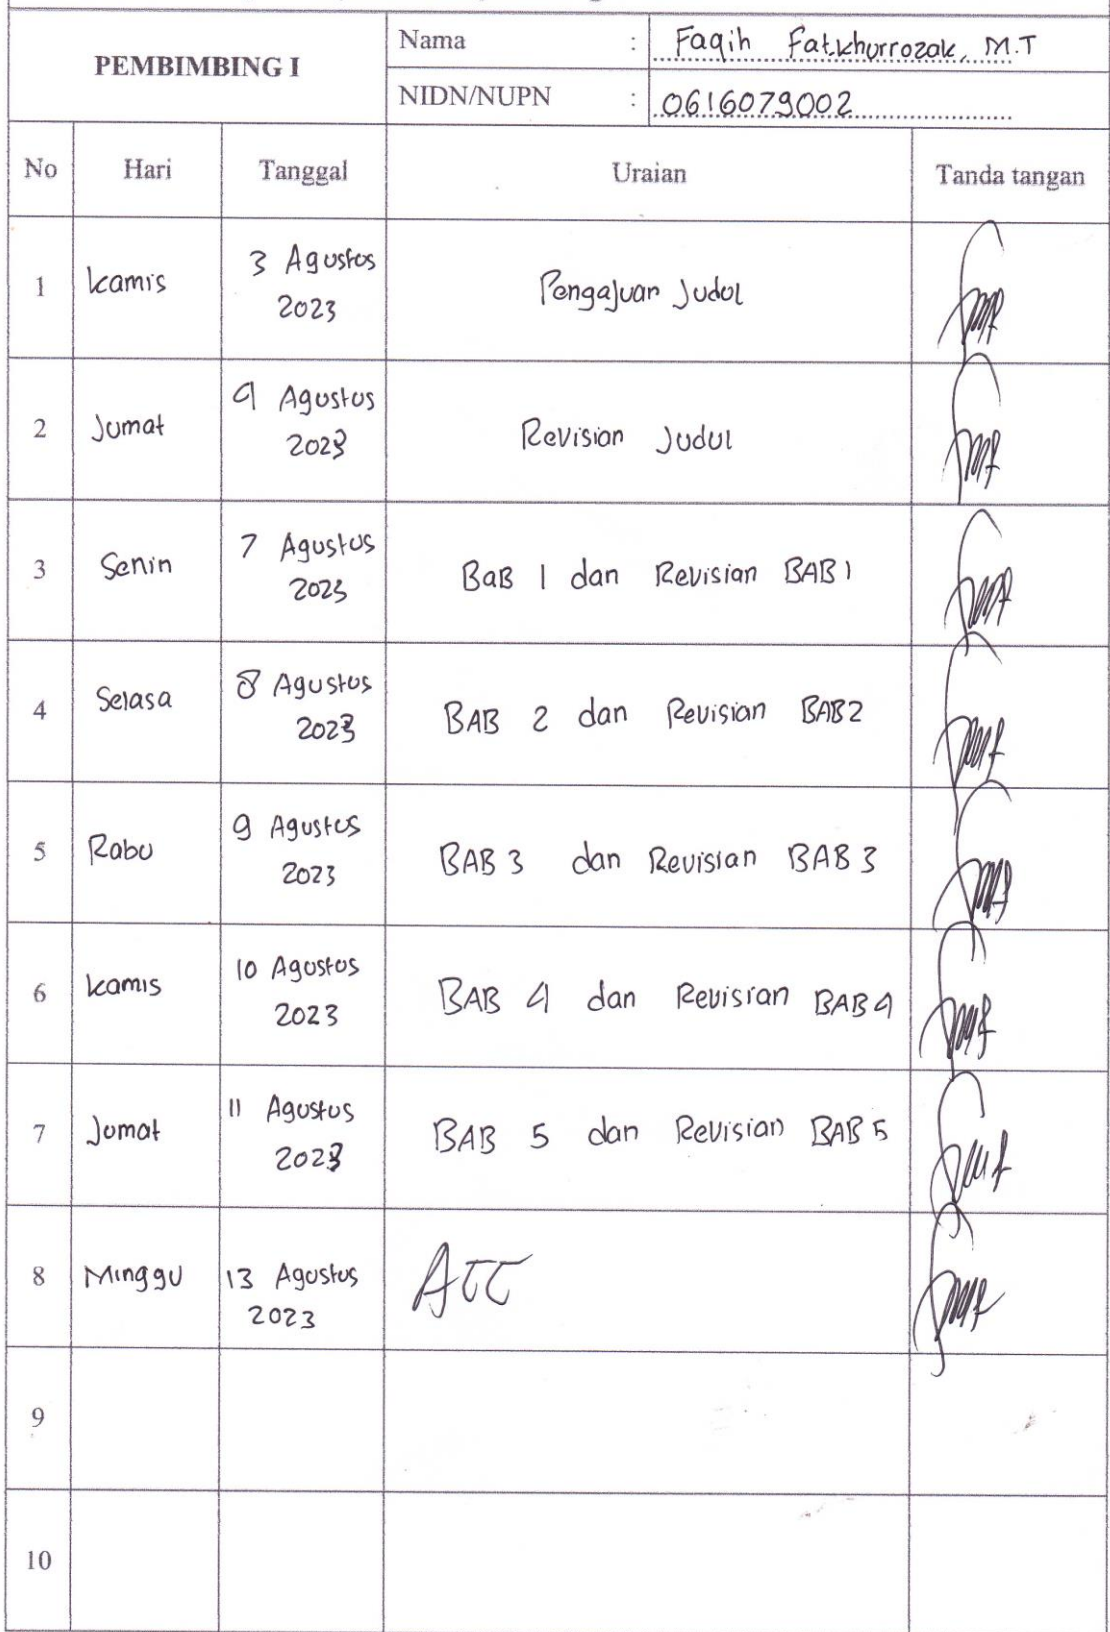 PEMBIMBING I
Nama : Faqih Fatkhurrozak, M.T
NIDN/NUPN : 0616079002
No Hari Tanggal Uraian Tanda tangan
1 Kamis 3 Agustus 2023 Pengajuan Judul
2 Jumat 4 Agustus 2023 Revisian Judul
3 Senin 7 Agustus 2023 BaB 1 dan Revisian BAB 1
4 Selasa 8 Agustus 2023 BAB 2 dan Revisian BAB2
5 Rabu 9 Agustus 2023 BAB 3 dan Revisian BAB 3
6 Kamis 10 Agustus 2023 BAB 4 dan Revisian BAB 4
7 Jumat 11 Agustus 2023 BAB 5 dan Revisian BAB 5
8 Minggu 13 Agustus 2023 ACC
9
10